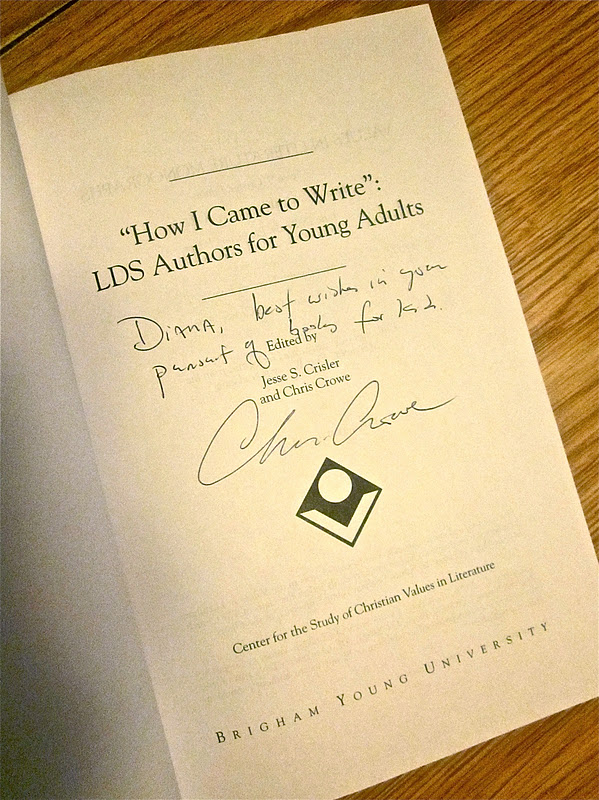 "How I Came to Write":
LDS Authors for Young Adults
Diana, best wishes in your
pursuit of books for kids.
Edited by
Jesse S. Crisler
and Chris Crowe
Chris Crowe
Center for the Study of Christian Values in Literature
BRIGHAM YOUNG UNIVERSITY